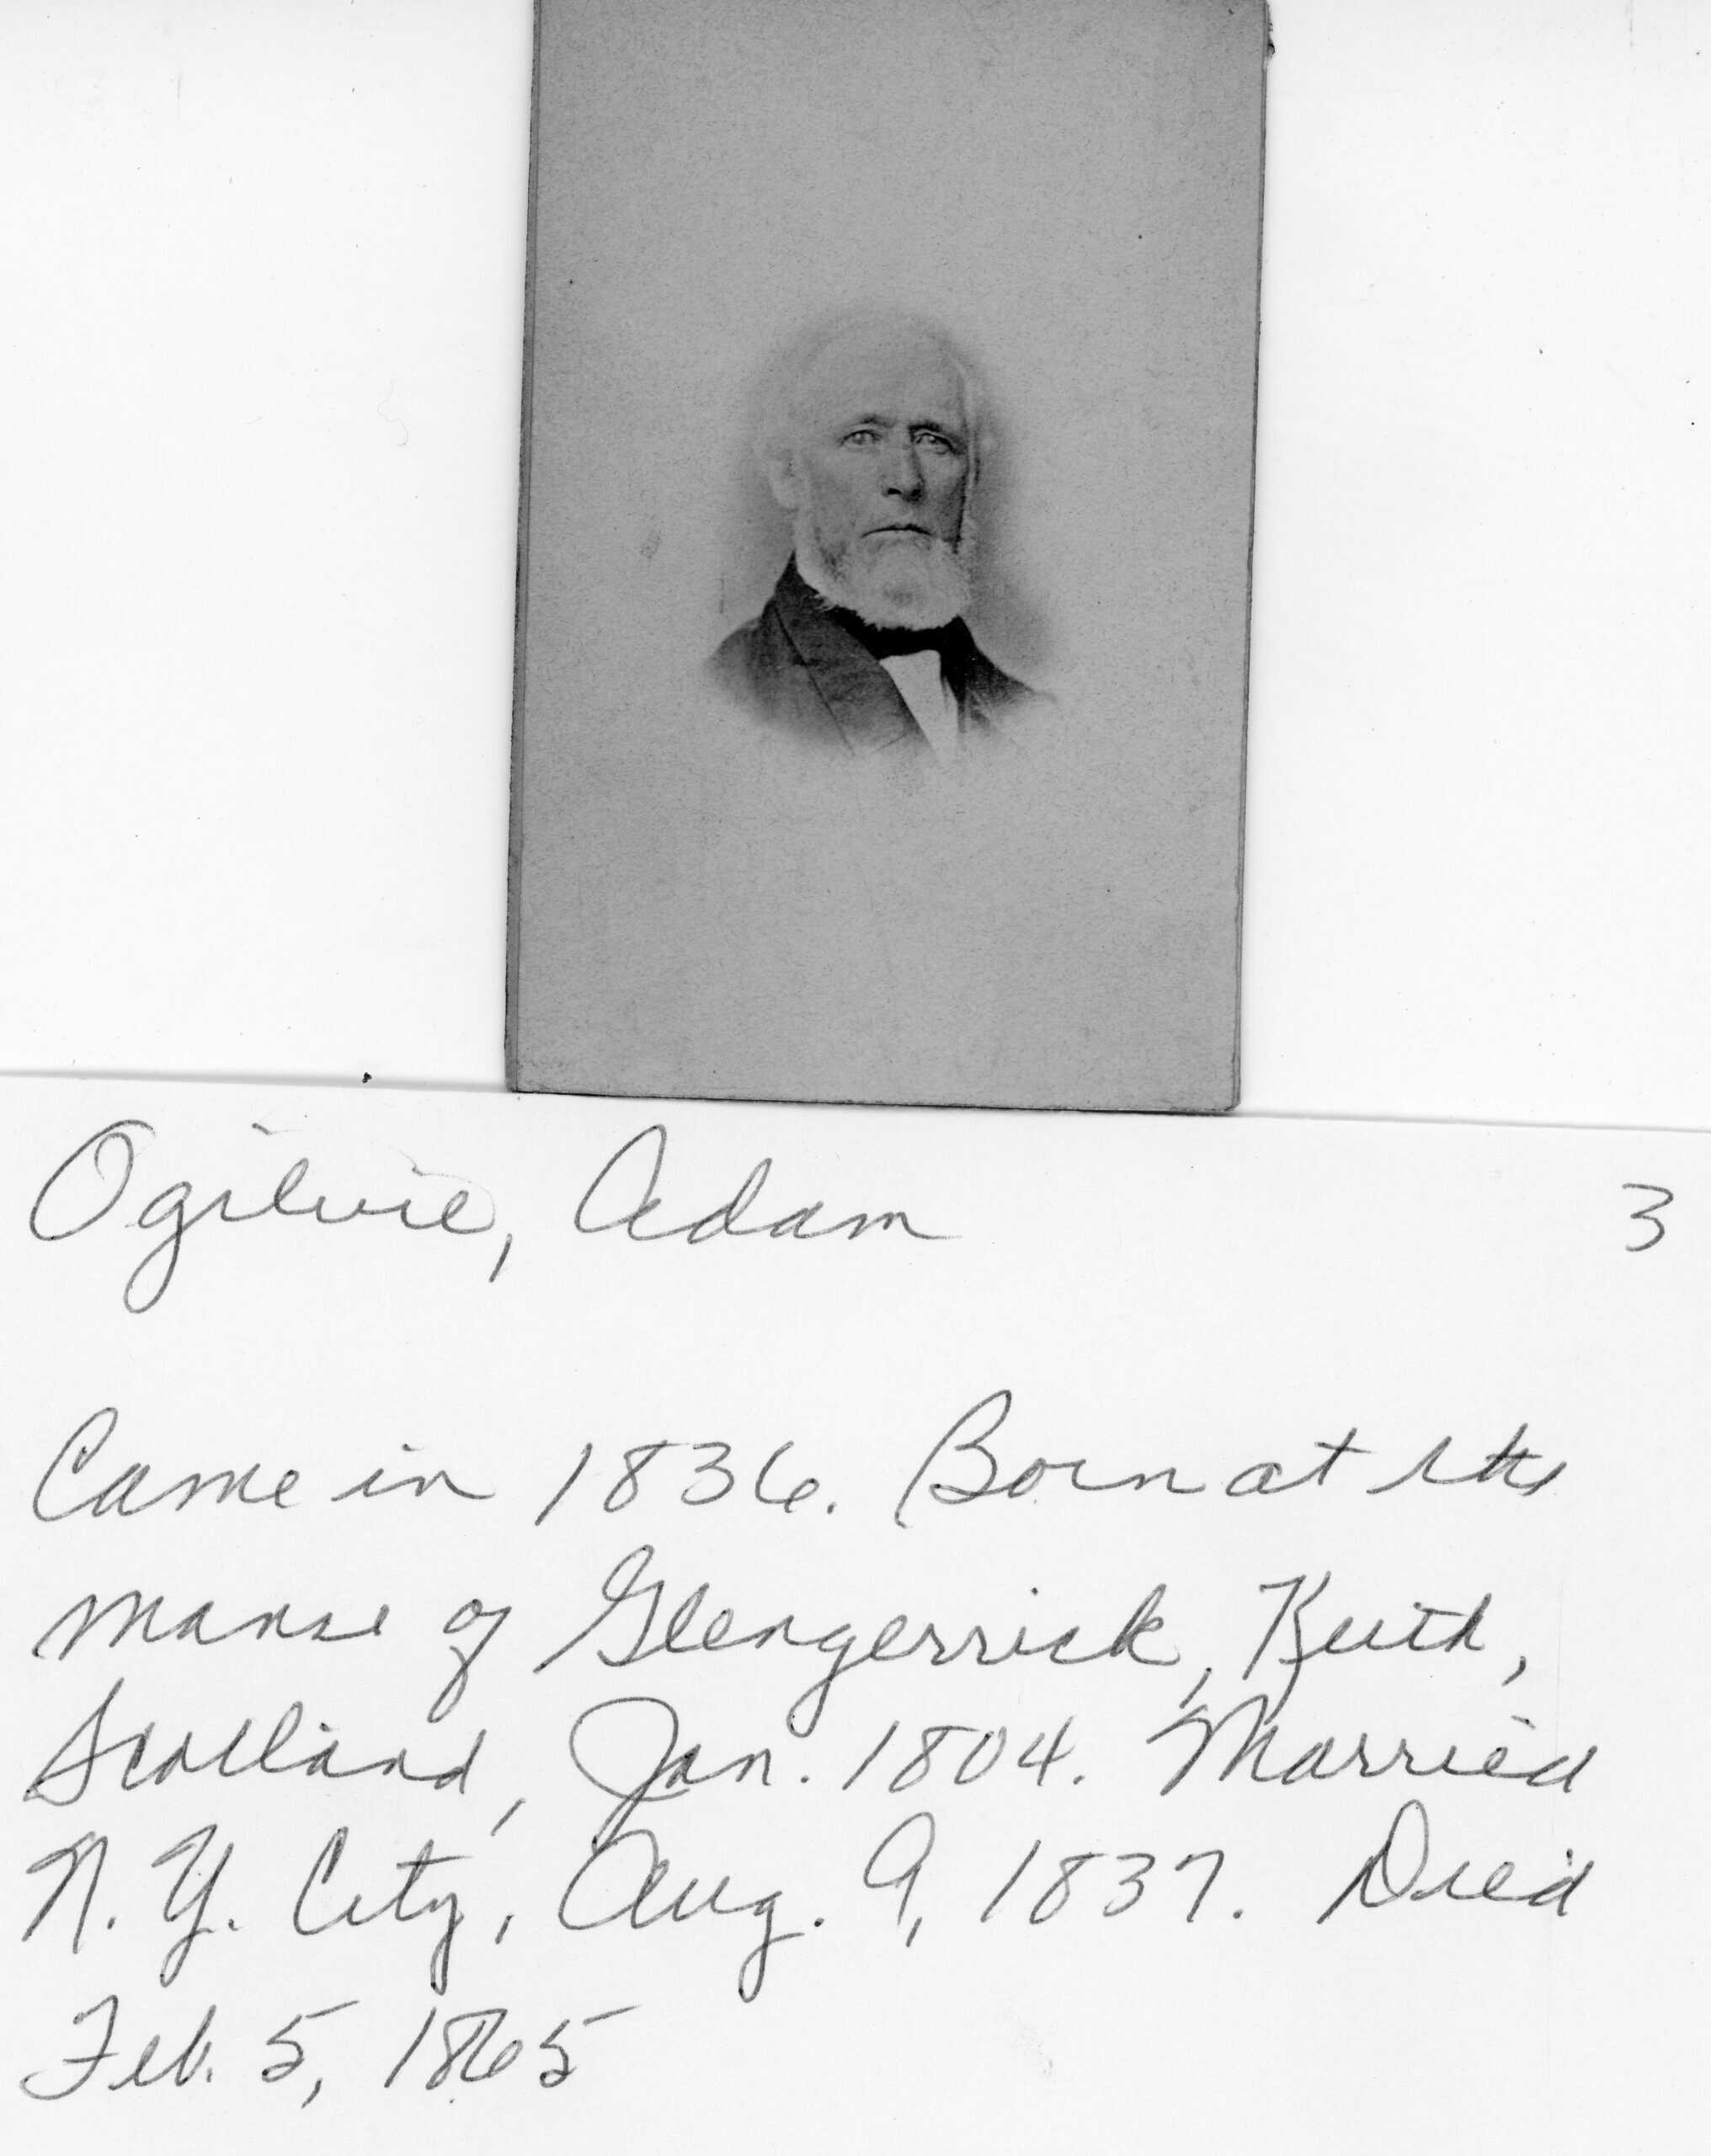 Ogilvie, Adam 3
Came in 1836. Born at the
manse of Glengerrick, Keith,
Scotland, Jan. 1804. Married
N. Y. City, Aug. 9, 1837. Died
Feb. 5, 1865